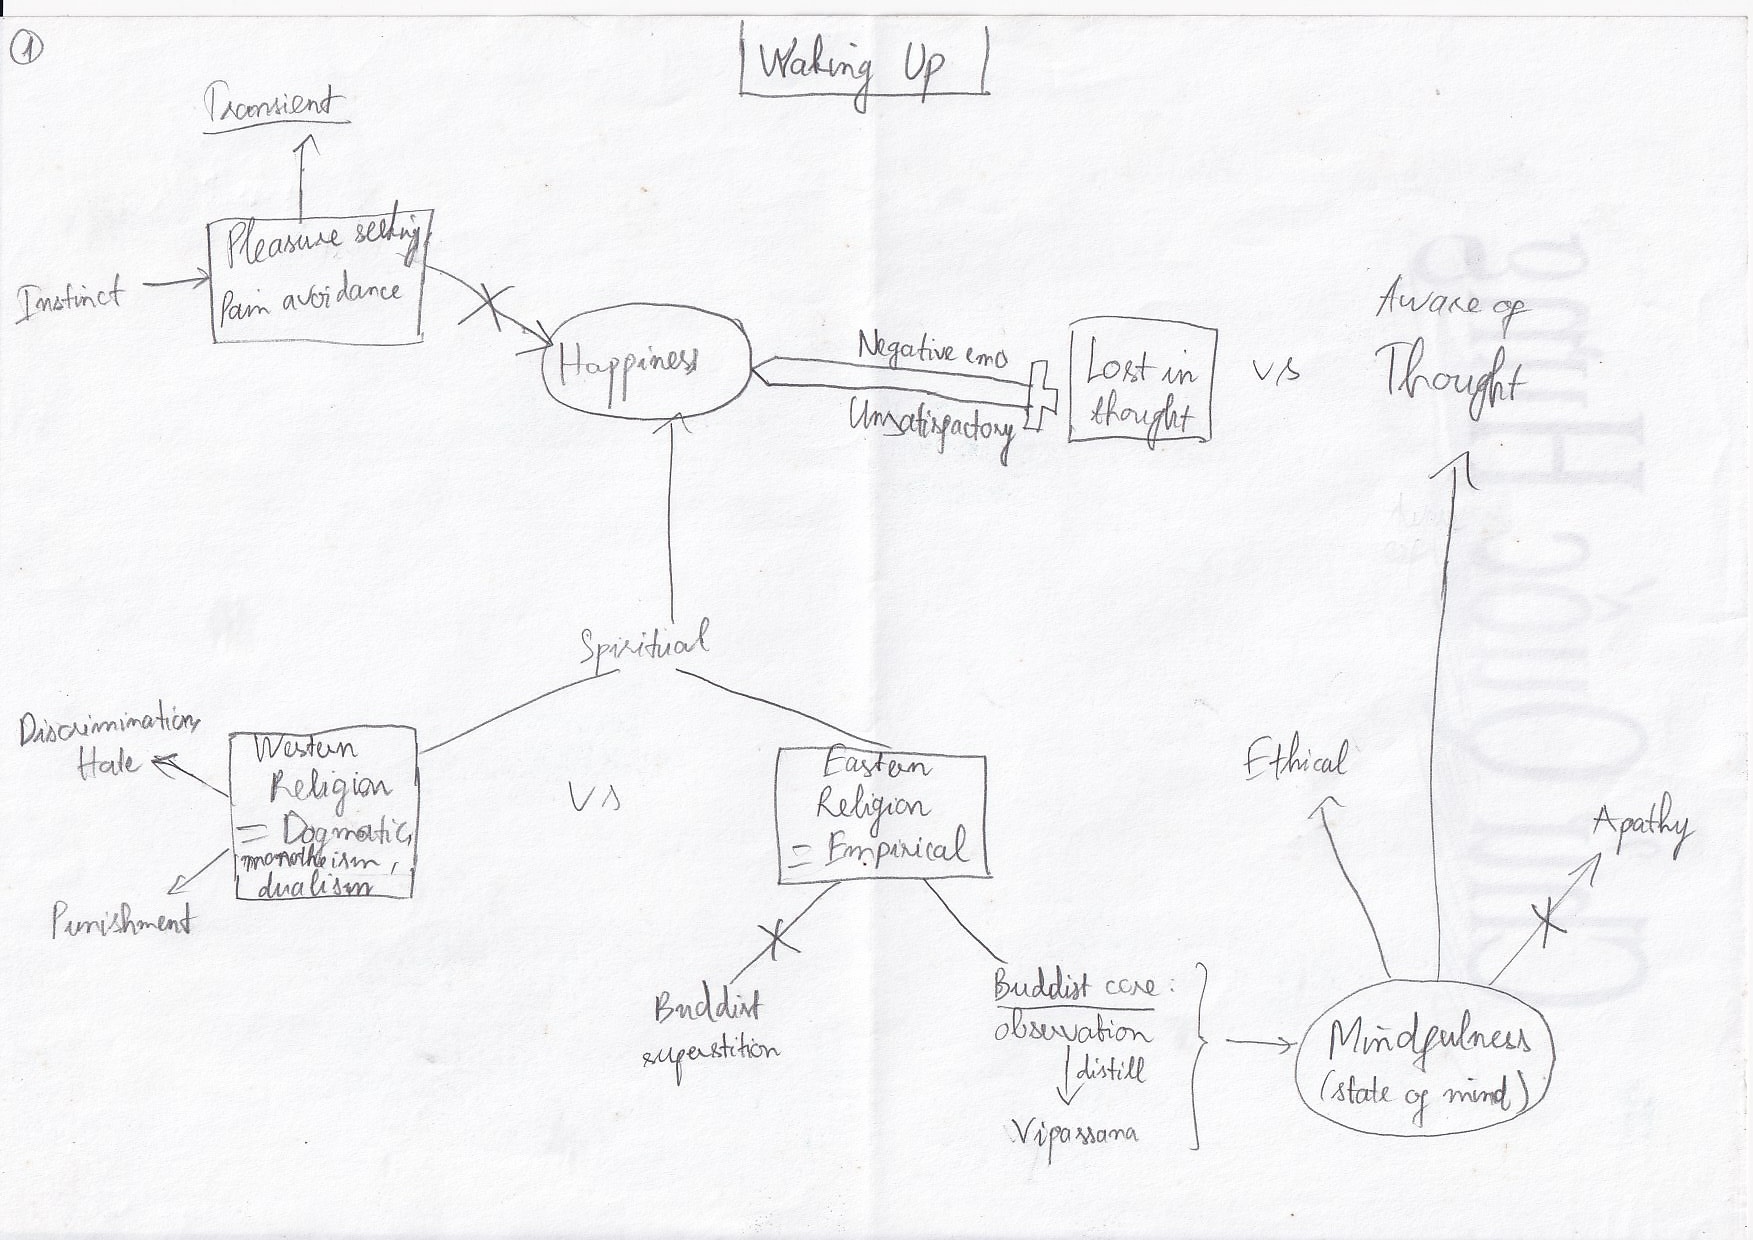 1
Waking Up
Transient
Pleasure seeking,
Pain avoidance
Instinct
Happiness
Negative emo
Unsatisfactory
Lost in
thought
vs
Aware of
Thought
Spiritual
Discrimination,
Hate
Western
Religion
= Dogmatic,
monotheism,
dualism
Punishment
vs
Eastern
Religion
= Empirical
Buddist
superstition
Buddist core:
observation
distill
Vipassana
Ethical
Apathy
Mindfulness
(state of mind)